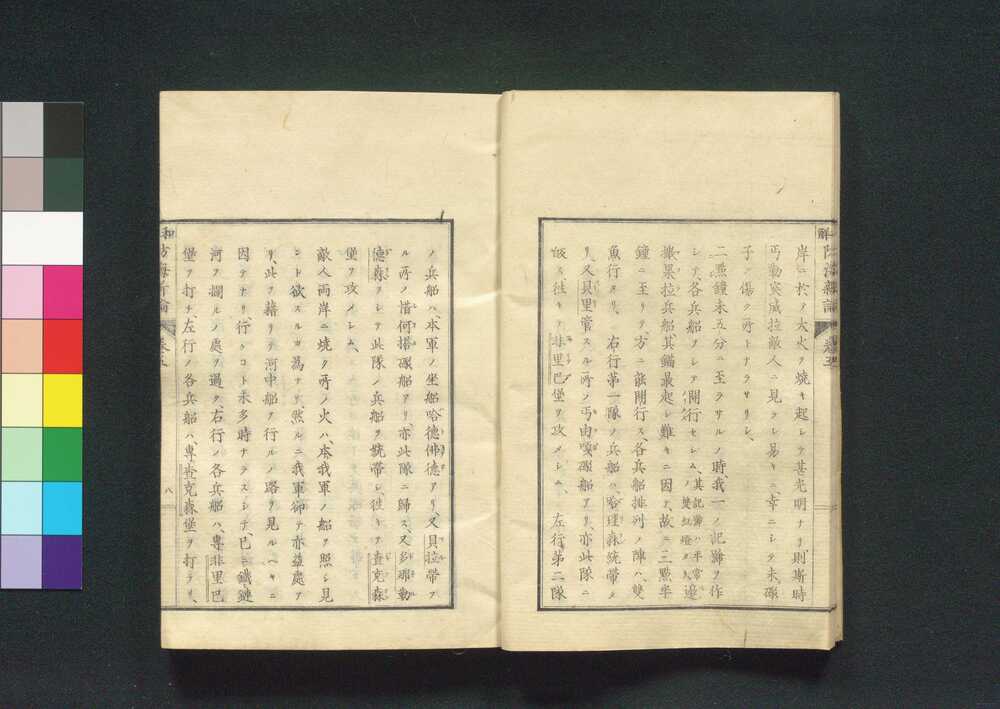 岸ニ於ヲ大火ヲ焼キ起シテ甚光明ナリ則斯時
丐勒窓威拉敵人ニ見ラレ易キニ幸ニシテ未礟
子ノ傷ク所トナラサリシ、
二點鐘未五分ニ至ラサルノ時我一ノ記號ヲ作
シテ、各兵船ヲシテ開行セシム、其記號ハ平常ノ雙紅燈ヲ
據果拉兵船其錨最起シ難キニ因テ、故ニ三點半
鐘ニ至リテ、方ニ能開行ス、各兵船排列ノ陣ハ、雙
魚行タリ、右行第一隊ノ兵船ハ、哈理森統帶タ
リ、又貝里管スル所ノ丐由嘎礟船アリ、亦此隊ニ
皈ス、徃キテ非里巴堡ヲ攻メシム、左行第二隊
ノ兵船ハ、本軍ノ坐船哈德佛德アリ、又貝拉帶ア
ル所ノ惜何搭礟船アリ、亦此隊ニ歸ス、又多那勒
德森ヲシテ此隊ノ兵船ヲ統帶シ、徃キテ查克森
堡ヲ攻メシム、
敵人兩岸ニ燒ク所ノ火ハ、本我軍ノ船ヲ照シ見
ント欲スルカ為ナリ、然ルニ我軍却テ亦益處ア
リ、此ヲ藉リテ河中船ヲ行ルノ路ヲ見ルヘキニ
因テナリ、行クコト未多時ナラスシテ、已ニ鐵鏈
河ヲ攔ルノ處ヲ過ク、右行ノ各兵船ハ、專非里巴
堡ヲ打チ、左行ノ各兵船ハ、專查克森堡ヲ打テリ、
八